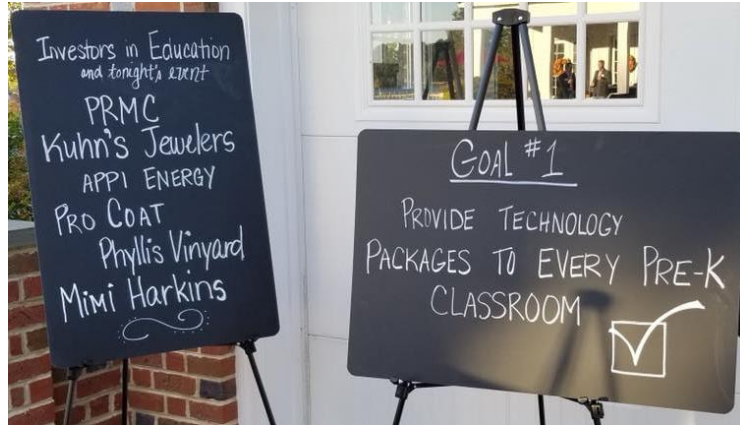 Investors in Education
and tonight's event
PRMC
Kuhn's Jewelers
APPI ENERGY
PRO COAT
Phyllis Vinyard
Mimi Harkins
GOAL #1
PROVIDE TECHNOLOGY
PACKAGES TO EVERY PRE-K
CLASSROOM